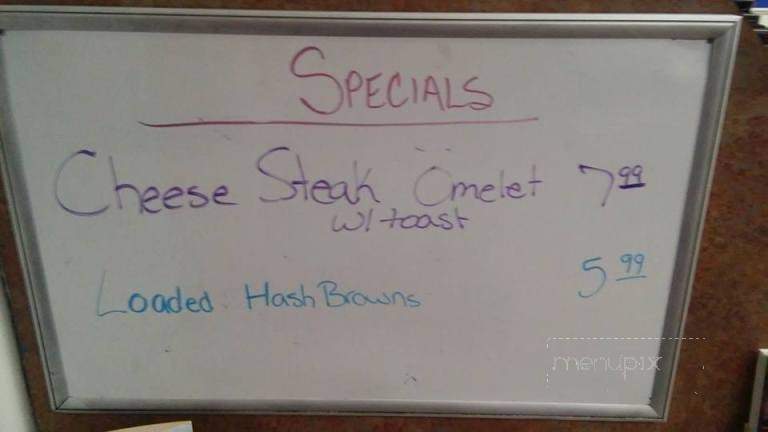 SPECIALS
Cheese Steak Omelet 7 99
w/ toast
Loaded Hash Browns 5 99
menupix